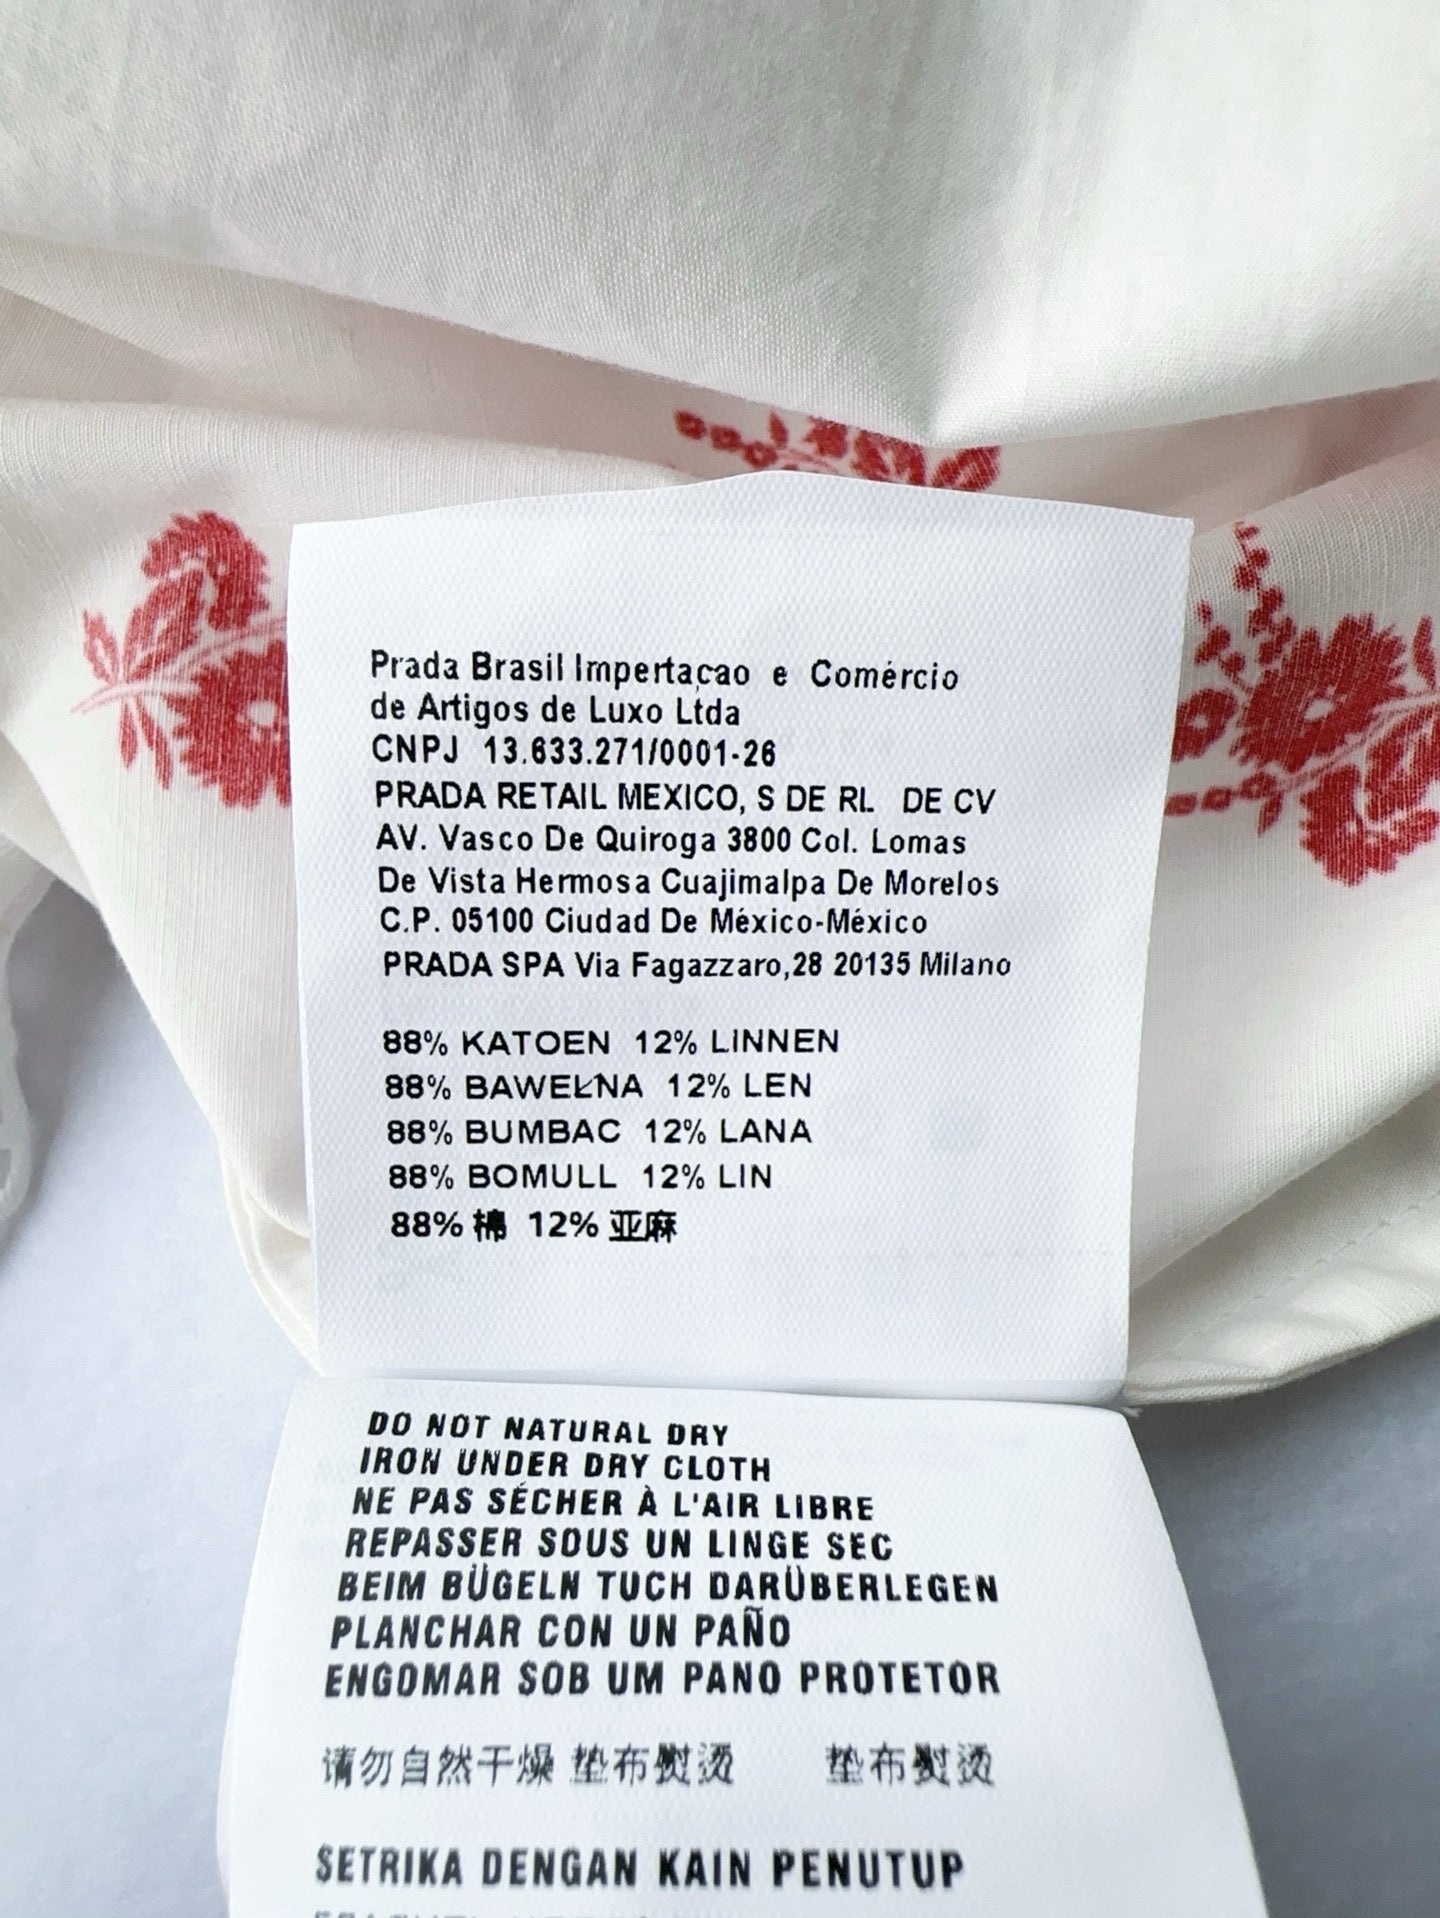 Prada Brasil Impertaçao e Comércio
de Artigos de Luxo Ltda
CNPJ 13.633.271/0001-26
PRADA RETAIL MEXICO, S DE RL DE CV
AV. Vasco De Quiroga 3800 Col. Lomas
De Vista Hermosa Cuajimalpa De Morelos
C.P. 05100 Ciudad De México-México
PRADA SPA Via Fagazzaro,28 20135 Milano
88% KATOEN 12% LINNEN
88% BAWEŁNA 12% LEN
88% BUMBAC 12% LANA
88% BOMULL 12% LIN
88% 棉 12% 亚麻
DO NOT NATURAL DRY
IRON UNDER DRY CLOTH
NE PAS SÉCHER À L'AIR LIBRE
REPASSER SOUS UN LINGE SEC
BEIM BÜGELN TUCH DARÜBERLEGEN
PLANCHAR CON UN PAÑO
ENGOMAR SOB UM PANO PROTETOR
请勿自然干燥 垫布熨烫 垫布熨烫
SETRIKA DENGAN KAIN PENUTUP